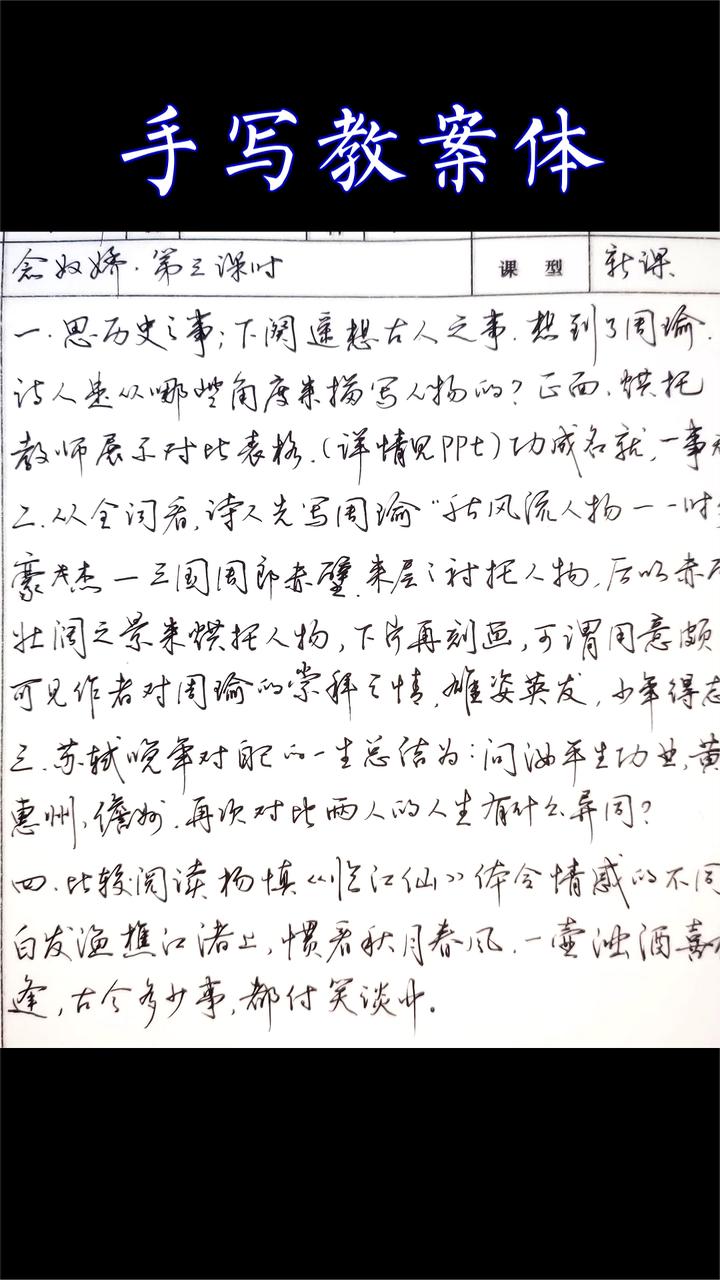 手写教案体
念奴娇·第三课时 课型 新课
一.思历史之事;下阕遥想古人之事.想到了周瑜.
诗人是从哪些角度来描写人物的?正面、烘托
教师展示对比表格.(详情见PPt)功成名就,一事
二.从全词看,诗人先写周瑜"
风流人物——时
豪杰—三国周郎赤壁.来层层衬托人物,后以赤
壮阔之景来烘托人物,下片再刻画,可谓用意颇
可见作者对周瑜的崇拜之情,雄姿英发,少年得志
三.苏轼晚年对自己的一生总结为:问汝平生功业,黄
惠州,儋州.再次对比两人的人生有什么异同?
四.比较阅读杨慎《临江仙》体会情感的不同
白发渔樵江渚上,惯看秋月春风.一壶浊酒喜
逢,古今多少事,都付笑谈中。